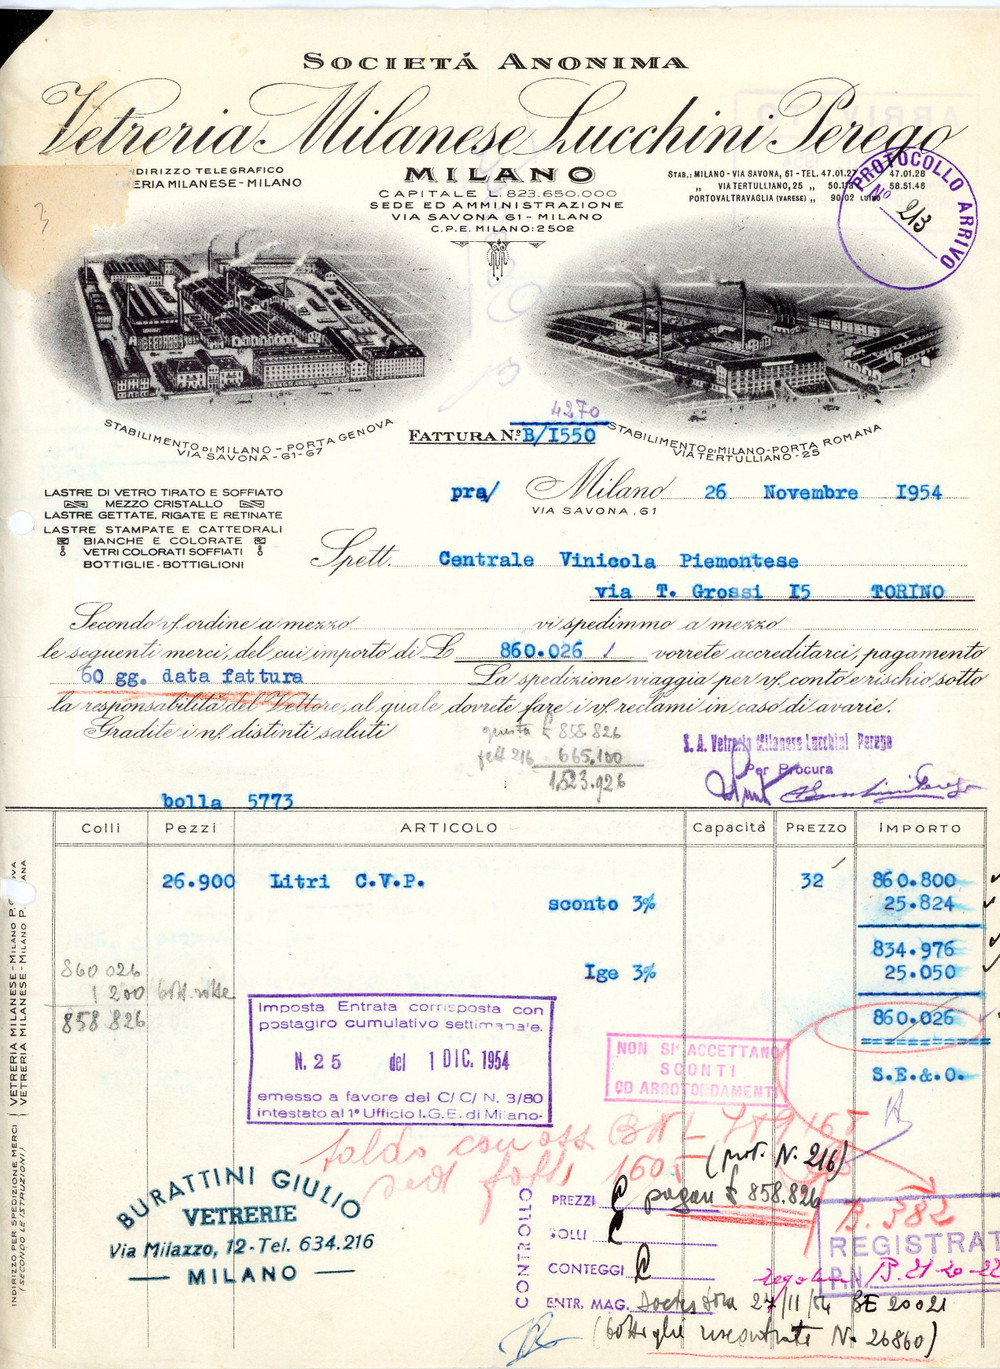 SOCIETÁ ANONIMA
Vetreria Milanese Lucchini Perego
MILANO
CAPITALE L. 823.650.000
SEDE ED AMMINISTRAZIONE
VIA SAVONA 61 - MILANO
C.P.E. MILANO: 2502
NDIRIZZO TELEGRAFICO
RERIA MILANESE - MILANO
STAB.: MILANO - VIA SAVONA, 61 - TEL. 47.01.27 47.01.28
" VIA TERTULLIANO, 25 " 50.113 58.51.46
PORTOVALTRAVAGLIA (VARESE) " 90.02 LUINO
PROTOCOLLO ARRIVO
No 213
3
STABILIMENTO DI MILANO - PORTA GENOVA
VIA SAVONA - 61-67
4270
FATTURA N.º B/I550
STABILIMENTO DI MILANO - PORTA ROMANA
VIA TERTULLIANO - 25
LASTRE DI VETRO TIRATO E SOFFIATO
MEZZO CRISTALLO
LASTRE GETTATE, RIGATE E RETINATE
LASTRE STAMPATE E CATTEDRALI
BIANCHE E COLORATE
VETRI COLORATI SOFFIATI
BOTTIGLIE - BOTTIGLIONI
pra/ Milano 26 Novembre I954
VIA SAVONA, 61
Spett. Centrale Vinicola Piemontese
via T. Grossi I5 TORINO
Secondo vs/ ordine a mezzo vi spedimmo a mezzo
le seguenti merci, del cui importo di L 860.026 vorrete accreditarci, pagamento
60 gg. data fattura La spedizione viaggia per vs/ conto e rischio sotto
la responsabilità del Vettore, al quale dovrete fare i vs/ reclami in caso di avarie.
Gradite i ns/ distinti saluti
questa £ 858.826
fatt 216 665.100
1.523.926
S. A. Vetreria Milanese Lucchini Perego
Per Procura
bolla 5773
Colli Pezzi ARTICOLO Capacità PREZZO IMPORTO
26.900 Litri C.V.P. 32 860.800
sconto 3% 25.824
834.976
Ige 3% 25.050
860.026
S.E.&.O.
860 026
1 200 bott. rotte
858 826
Imposta Entrata corrisposta con
postagiro cumulativo settimanale.
N. 25 del 1 DIC. 1954
emesso a favore del C/C N. 3/80
intestato al 1º Ufficio I.G.E. di Milano.
NON SI ACCETTANO
SCONTI
OD ARROTONDAMENTI
saldo con ass BNL 789165
(prot. N. 216)
BURATTINI GIULIO
VETRERIE
Via Milazzo, 12 - Tel. 634.216
MILANO
CONTROLLO
PREZZI pagare £ 858.826
COLLI
CONTEGGI
ENTR. MAG. 27/11/54 BE 20021
(bottiglie riscontrate N. 26860)
B. 382
REGISTRAT
P.N. B. 21-20-22
INDIRIZZO PER SPEDIZIONE MERCI
(SECONDO LE ISTRUZIONI)
VETRERIA MILANESE - MILANO P. GENOVA
VETRERIA MILANESE - MILANO P. ROMANA